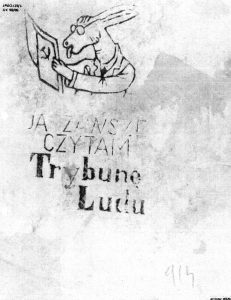 JA ZAWSZE
CZYTAM
Trybunę
Ludu